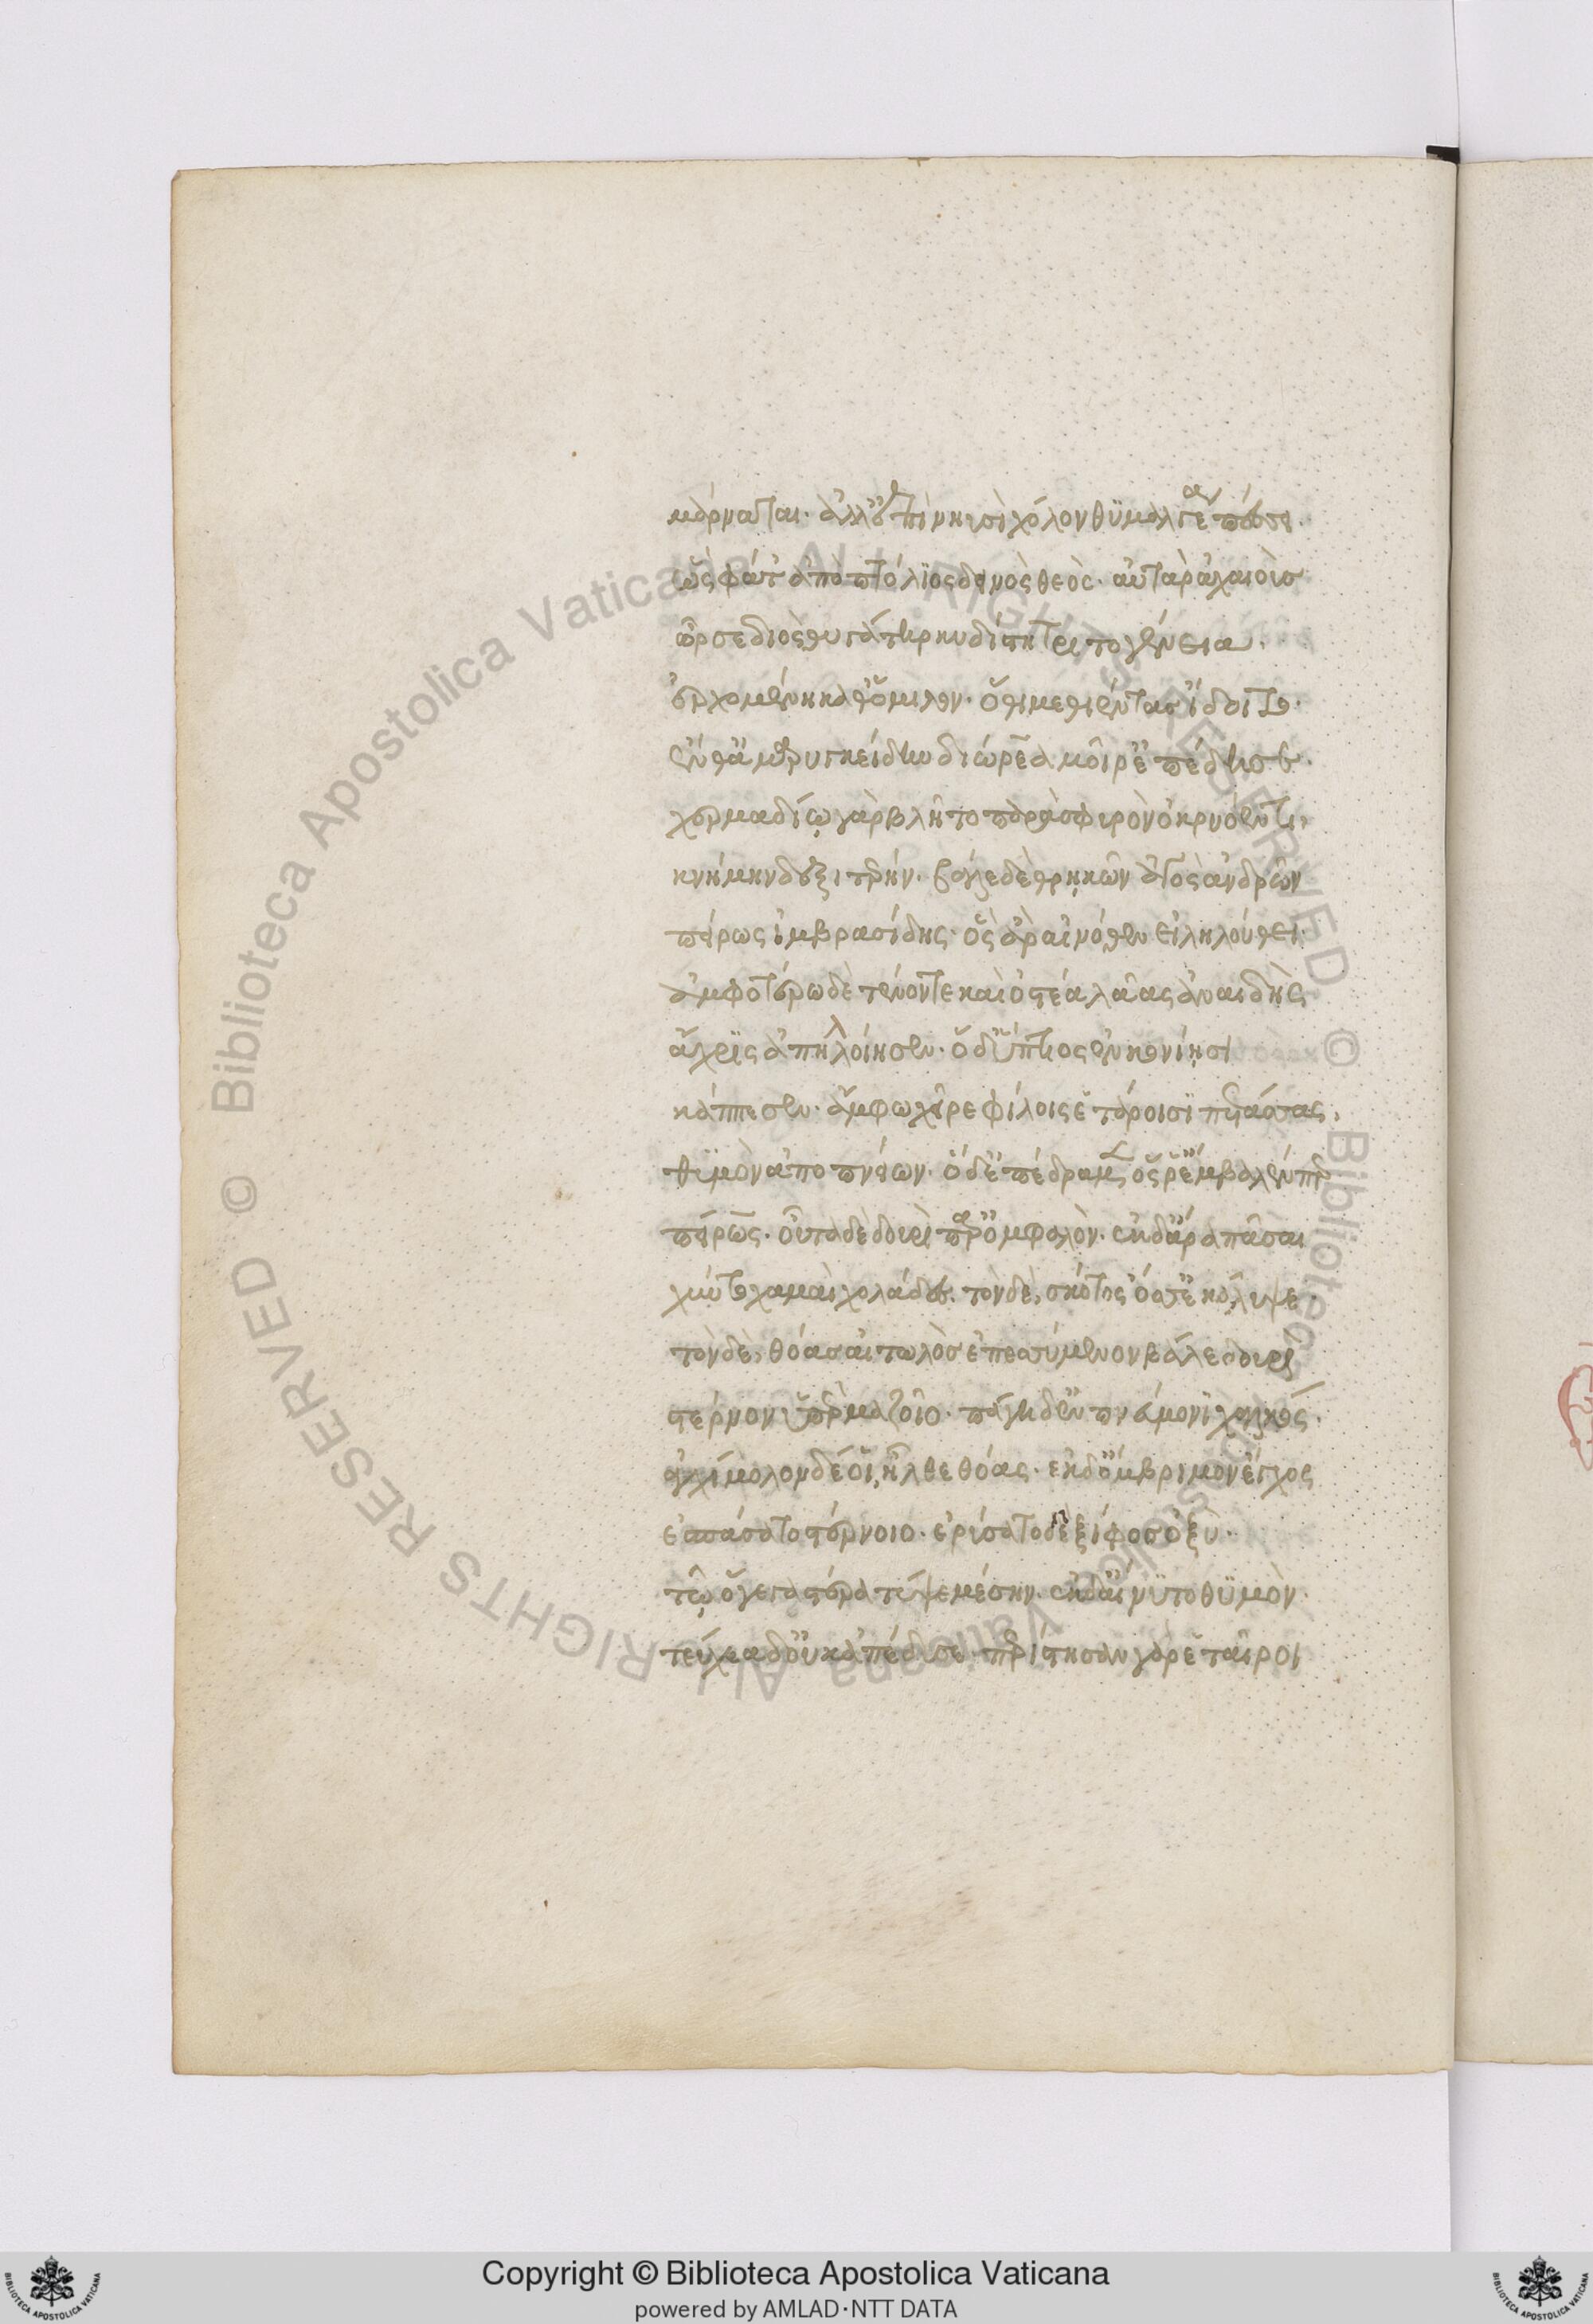 μάρναται· ἀλλ' ἐπὶ νηυσὶ χόλον θυμαλγέα πέσσει·
ὣς φάτ' ἀπὸ πτόλιος δεινὸς θεός· αὐτὰρ ἀχαιοὺς
ὦρσε διὸς θυγάτηρ κυδίστη τριτογένεια·
ἐρχομένη καθ' ὅμιλον· ὅθι μεθιέντας ἴδοιτο·
ἔνθ' ἀμαρυγκείδην διώρεα μοῖρ' ἐπέδησε·
χερμαδίῳ γὰρ βλῆτο παρὰ σφυρὸν ὀκρυόεντι,
κνήμην δεξιτερήν· βάλε δὲ θρηκῶν ἀγὸς ἀνδρῶν
πείρως ἰμβρασίδης· ὃς ἄρ' αἰνόθεν εἰληλούθει·
ἀμφοτέρω δὲ τένοντε καὶ ὀστέα λᾶας ἀναιδὴς
ἄχρις ἀπηλοίησεν· ὃ δ' ὕπτιος ἐν κονίῃσι
κάππεσεν· ἄμφω χεῖρε φίλοις ἑτάροισι πετάσσας,
θυμὸν ἀποπνείων· ὁ δ' ἐπέδραμεν ὅς ῥ' ἔμβαλέν περ
πείρως· οὖτα δὲ δουρὶ παρ' ὀμφαλόν· ἐκ δ' ἄρα πᾶσαι
χύντο χαμαὶ χολάδες· τὸν δὲ, σκότος ὄσσ' ἐκάλυψε·
τὸν δὲ, θόας αἰτωλὸς ἐπεσσύμενον βάλε δουρὶ
στέρνον ὑπὲρ μαζοῖο· πάγη δ' ἐν πνεύμονι χαλκός·
ἀγχίμολον δέ οἱ ἦλθε θόας· ἐκ δ' ὄμβριμον ἔγχος
ἐσπάσατο στέρνοιο· ἐρύσατο δὲ ξίφος ὀξὺ·
τῷ ὅγε γαστέρα τύψε μέσην· ἐκ δ' αἴνυτο θυμὸν·
τεύχεα δ' οὐκ ἀπέδυσε· περίστησαν γὰρ ἑταῖροι
Copyright © Biblioteca Apostolica Vaticana
powered by AMLAD·NTT DATA